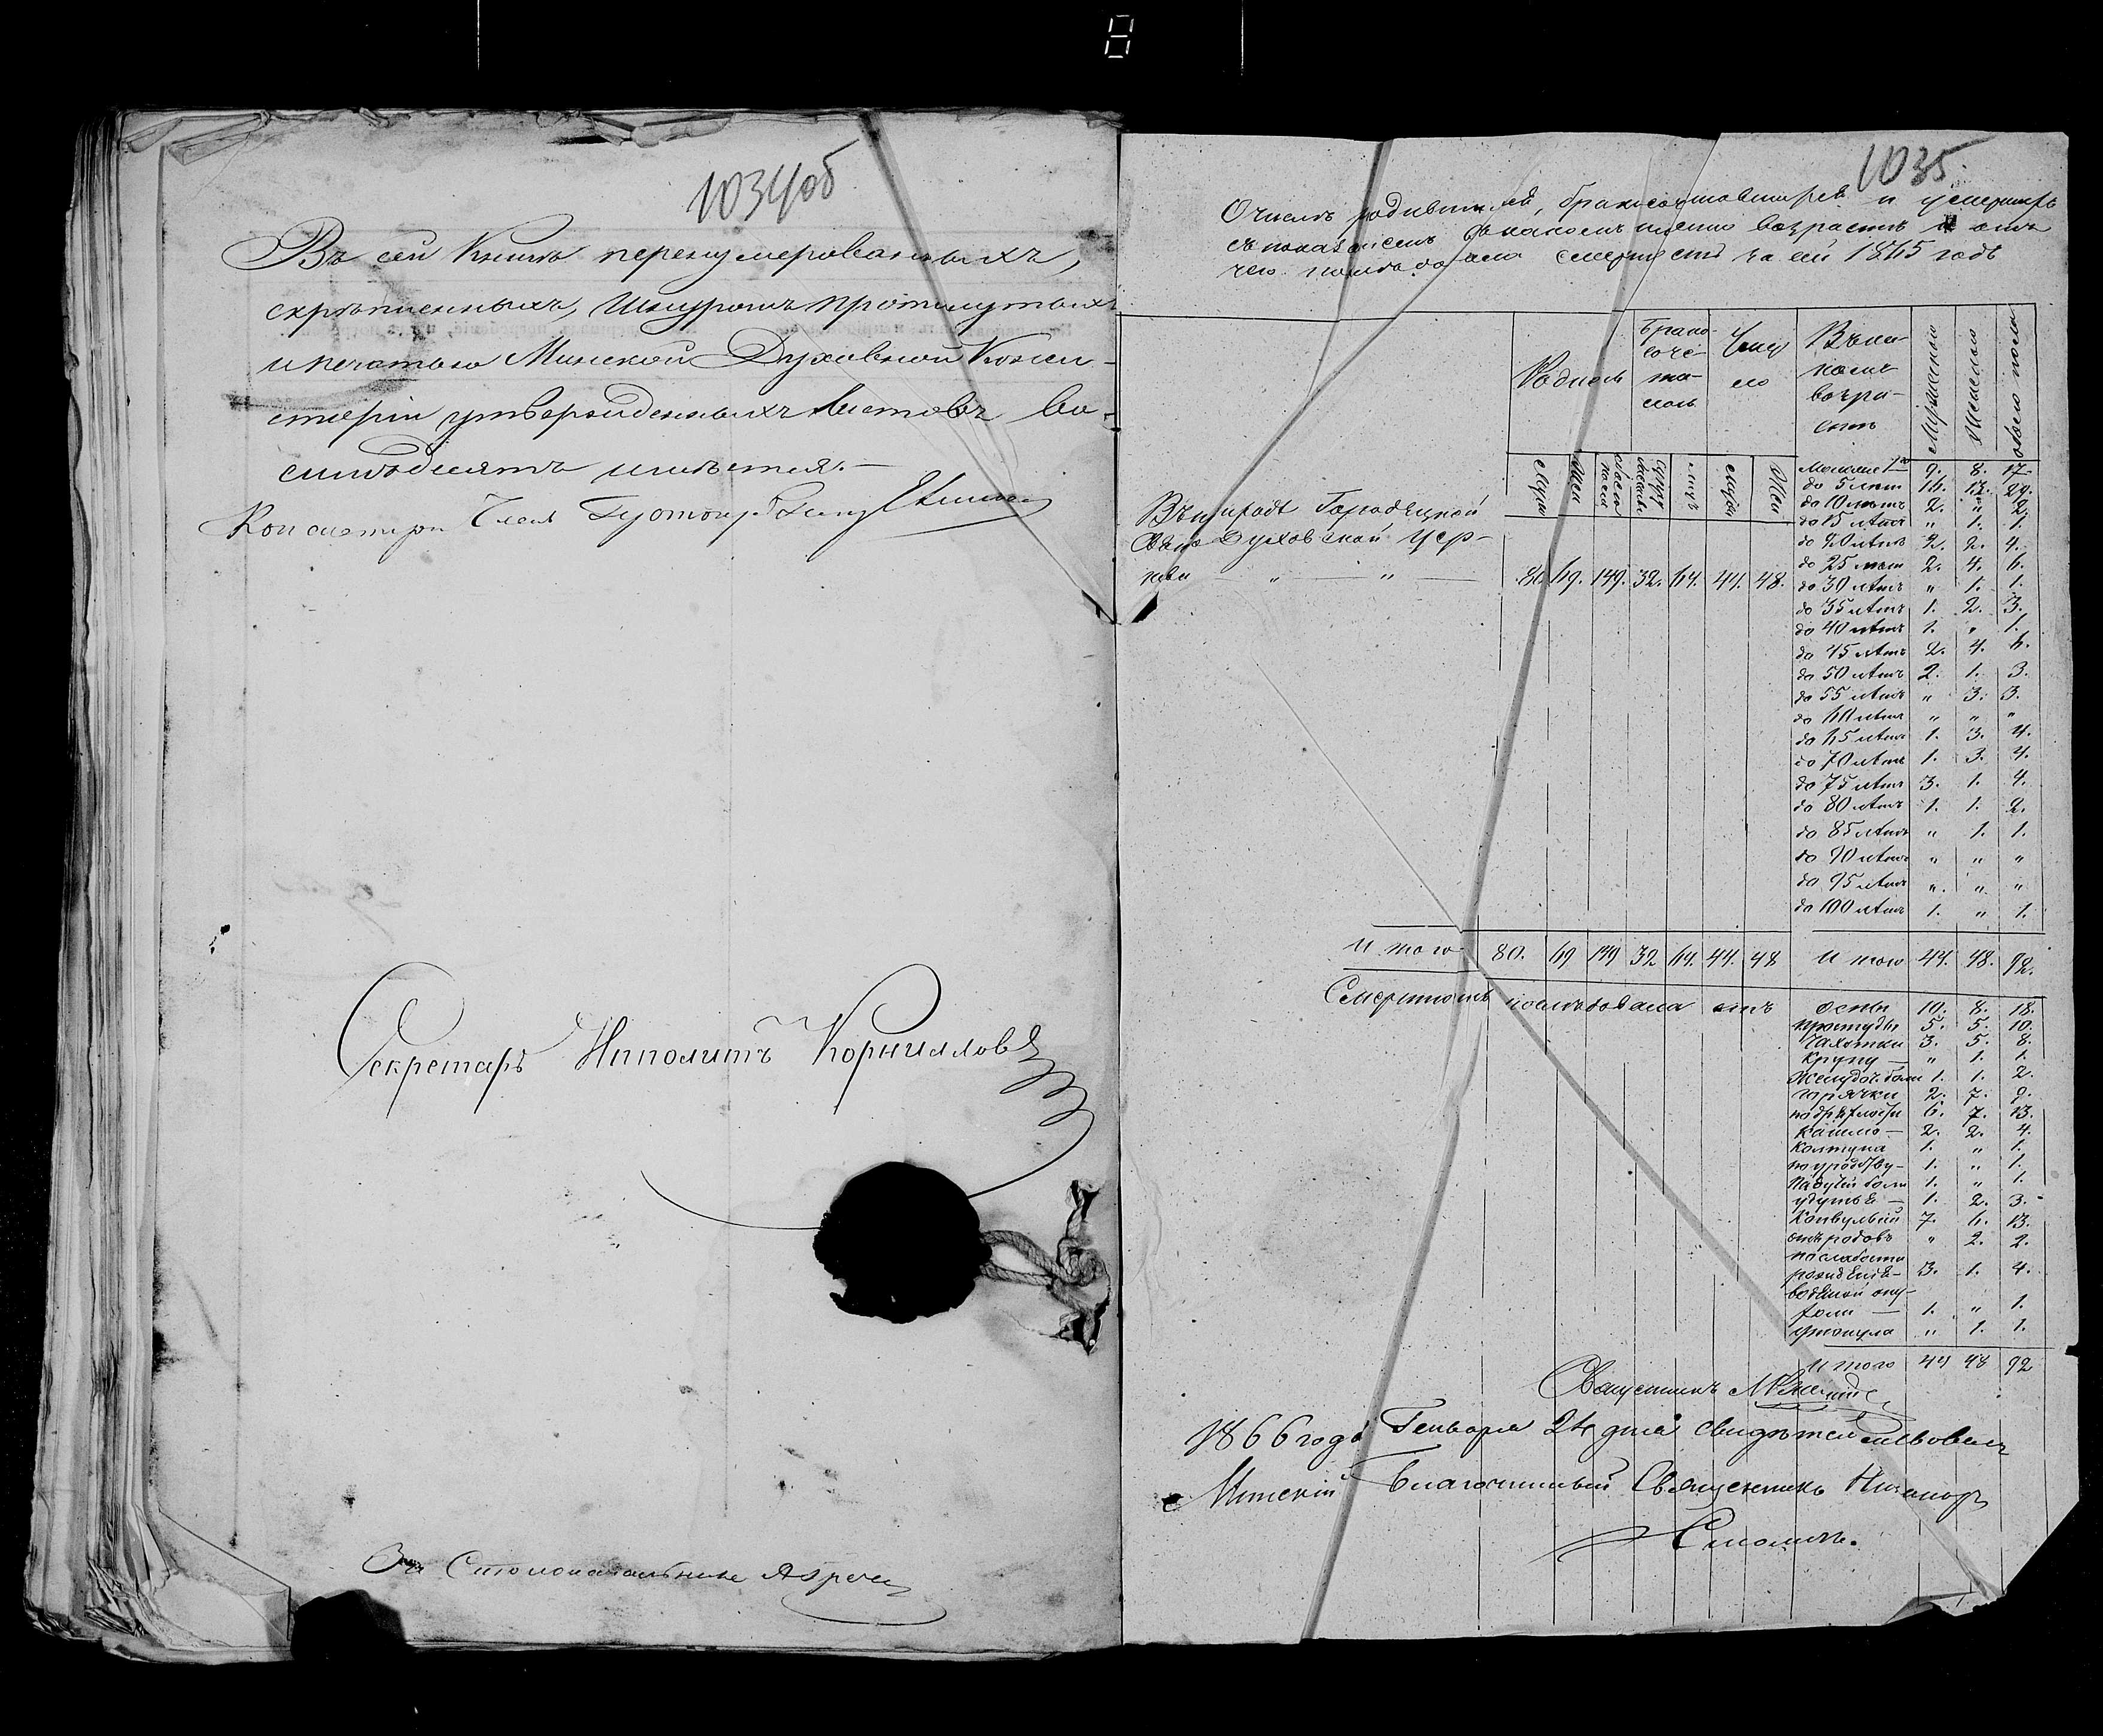 1034об
Въ сей Книгѣ перенумерованныхъ,
скрѣпленныхъ, шнуромъ протянутыхъ
и печатью Минской Духовной Конси-
сторіи утвержденныхъ листовъ во-
семьдесятъ имѣется.—
Консисторіи Членъ
Секретарь Ипполитъ Корниловъ
За Столоначальника
1035.
О числѣ родившихся, бракосочетавшихся и умершихъ
съ показаніемъ въ какомъ именно возрастѣ и отъ
чего послѣдовала смерть за сей 1865 годъ
Родилось
Брако-
соче-
та-
лось
Умер
ло
Въ ка-
комъ
возра-
стѣ
Мужескаго
Женскаго
обоего пола
Муж
Жен
обоего
пола
Муж
Жен
Въ приходѣ Городецкой
Свято Духовской Цер-
кви — „ — „ — 80. 69. 149. 32. 64. 44. 48.
Моложе 1го 9. 8. 17.
до 5 лѣтъ 16. 13. 29.
до 10 лѣтъ 2. „ 2.
до 15 лѣтъ „ 1. 1.
до 20 лѣтъ 2. 2. 4.
до 25 лѣтъ 2. 4. 6.
до 30 лѣтъ „ 1. 1.
до 35 лѣтъ 1. 2. 3.
до 40 лѣтъ 1. „ 1.
до 45 лѣтъ 2. 4. 6.
до 50 лѣтъ 2. 1. 3.
до 55 лѣтъ „ 3. 3.
до 60 лѣтъ „ „ „
до 65 лѣтъ 1. 3. 4.
до 70 лѣтъ 1. 3. 4.
до 75 лѣтъ 3. 1. 4.
до 80 лѣтъ 1. 1. 2.
до 85 лѣтъ „ 1. 1.
до 90 лѣтъ „ „ „
до 95 лѣтъ „ „ „
до 100 лѣтъ 1. „ 1.
Итого 80. 69 149 32 64. 44. 48 Итого 44. 48. 92.
Смертность послѣдовала отъ оспы 10. 8. 18.
простуды 5. 5. 10.
чахотки 3. 5. 8.
крупу — „ 1. 1.
желудоч. боли 1. 1. 2.
горячки 2. 7. 9.
по дряхлости 6. 7. 13.
кашлю — 2. 2. 4.
колтуна 1. „ 1.
1. „ 1.
падучей боли 1. „ 1.
удушья — 1. 2. 3.
конвульсій 7. 6. 13.
отъ родовъ „ 2. 2.
по слабости
рожденія — 3. 1. 4.
водяной опу-
холи — 1. „ 1.
утонула „ 1. 1.
Итого 44 48 92
Священникъ
1866 года Генваря 24 дня свидѣтельствовалъ
Минскій Благочинный Священникъ Никаноръ
Смоличъ.